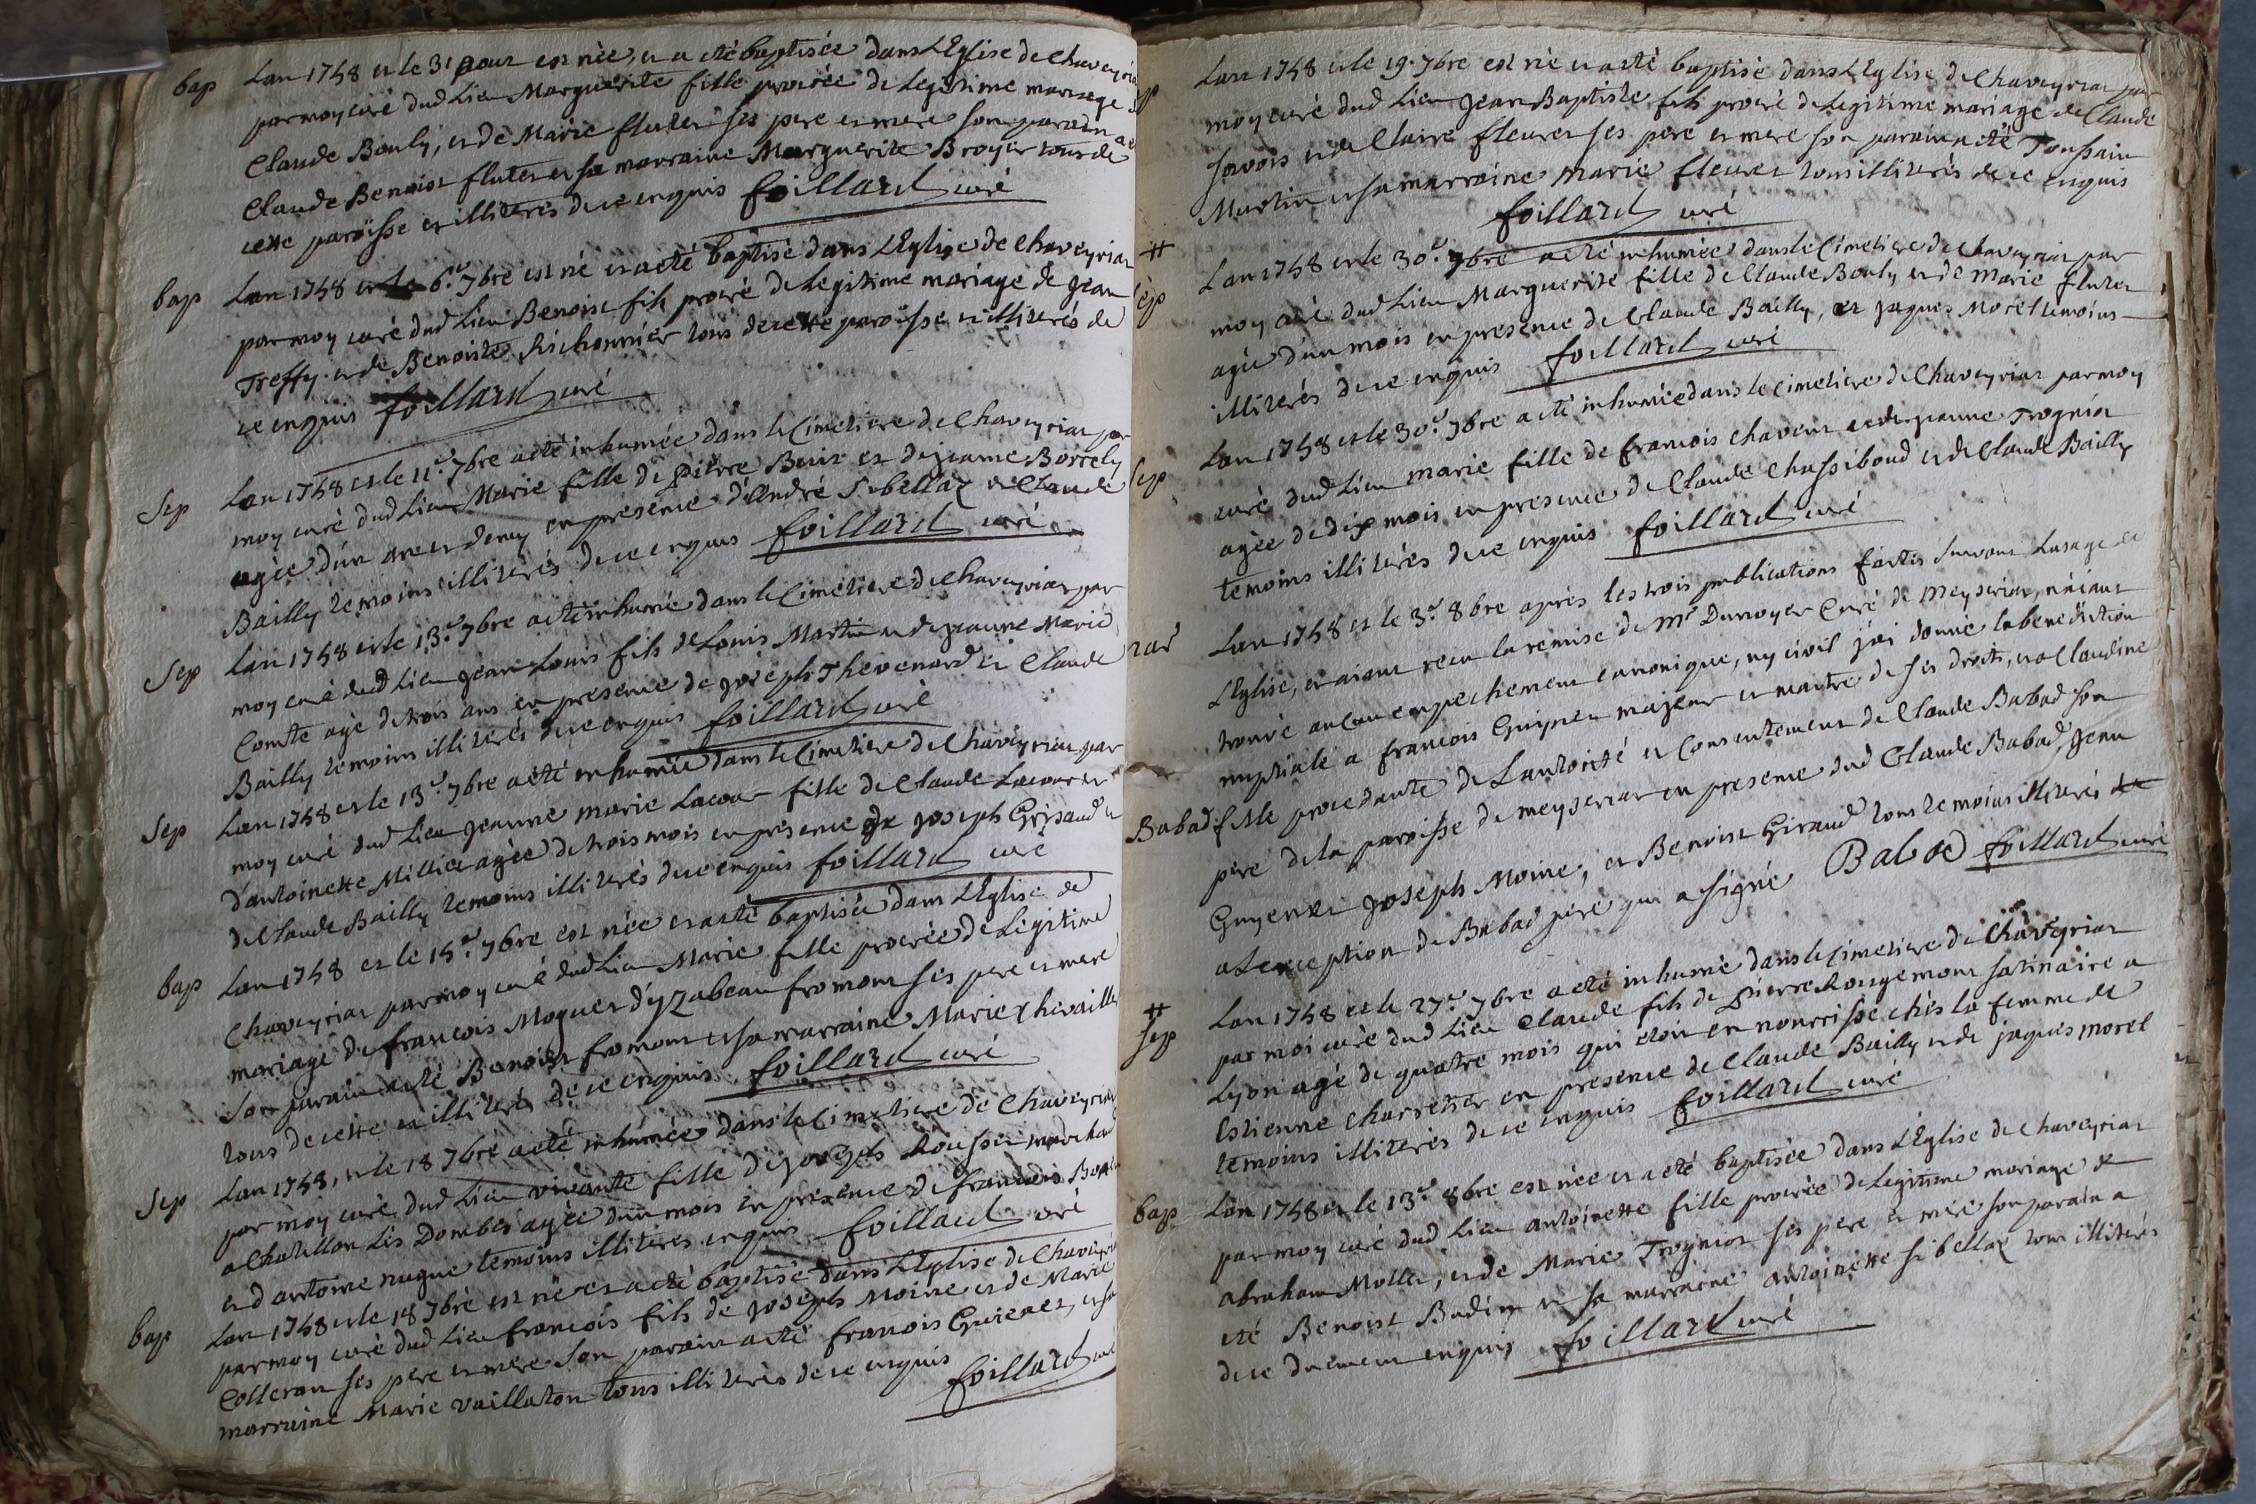 bap Lan 1748 et le 31 aout est née, et a eté baptisée dans L'Eglise de Chaveyriat
par moy curé dud Lieu Marguerite fille procrée de Legitime mariage de
Claude Bouly, et de Marie fluter ses pere et mere son parrain a eté
Claude Benoist fluter et sa marraine Marguerite Broyer tous de
cette paroisse et illiterés de ce enquis foillard curé
bap Lan 1748 et le 6e. 7bre est né et a eté baptisé dans L'Eglise de Chaveyriat
par moy curé dud Lieu Benoist fils procré de Legitime mariage de Jean
Treffy et de Benoiste Richonnier tous de cette paroisse et illiterés de
ce enquis foillard curé
Sep Lan 1748 et le 11e. 7bre a eté inhumée dans le Cimetiere de Chaveyriat par
moy curé dud Lieu Marie fille de pierre et de jeanne Borcely
agée d'un an et demy en presence d'André Sibellas et Claude
Bailly temoins illiterés de ce enquis foillard curé
Sep Lan 1748 et le 13e. 7bre a eté inhumé dans le Cimetiere de Chaveyriat par
moy curé dud Lieu Jean Louis fils de Louis Martin et de jeanne Marie
Comte agé de trois ans en presence de joseph Thevenard et Claude
Bailly temoins illiterés de ce enquis foillard curé
Sep Lan 1748 et le 13e. 7bre a eté inhumée dans le Cimetiere de Chaveyriat par
moy curé dud Lieu Jeanne marie Lacour fille de Claude Lacour et
d'antoinette Millier agée de trois mois en presence de joseph Grisaud et
de Claude Bailly temoins illiterés de ce enquis foillard curé
bap Lan 1748 et le 15e. 7bre est née et a eté baptisée dans L'Eglise de
Chaveyriat par moy curé dud Lieu Marie fille procrée de Legitime
mariage de francois Moguet d'yzabeau fromont ses pere et mere
son parain a eté Benoist fromont et sa marraine Marie Chevaillier
tous de cette et illiterés de ce enquis foillard curé
Sep Lan 1748, et le 18 7bre a eté inhumée dans le Cimetiere de Chaveyriat
par moy curé dud Lieu vivante fille de joseph Rousset marchand
a Chatillon Les Dombes agée d'un mois en presence de francois
et d'antoine nugue temoins illiterés enquis foillard curé
bap Lan 1748 et le 18 7bre est né et a eté baptisé dans L'Eglise de Chaveyriat
par moy curé dud Lieu francois fils de joseph Moine et de Marie
Colleran ses pere et mere son parain a eté francois Guienet, et sa
marraine Marie vaillaton tous illiterés de ce enquis foillard curé
bap Lan 1748 et le 19. 7bre est né et a eté baptisé dans L'Eglise de Chaveyriat par
moy curé dud Lieu Jean Baptiste fils procré de Legitime mariage de Claude
Javois et de Claire fleuret ses pere et mere son parain a eté Toussain
Martin et sa marraine Marie fleuret tous illiterés de ce enquis
foillard curé
++
Sep Lan 1748 et le 30e. 7bre a eté inhumée dans le Cimetiere de Chaveyriat par
moy curé dud Lieu Marguerite fille de Claude Bouly et de Marie fluter
agée d'un mois en presence de Claude Bailly, et jaques Morel temoins
illiterés de ce enquis foillard curé
Sep Lan 1748 et le 30e. 7bre a eté inhumée dans le Cimetiere de Chaveyriat par moy
curé dud Lieu marie fille de francois chaveur et de jeanne Trogniat
agée de dix mois en presence de Claude Chassiboud et de Claude Bailly
temoins illiterés de ce enquis foillard curé
mar Lan 1748 et le 3e. 8bre aprés les trois publications faites suivant Lusage de
L'Eglise, et aiant recu la remise de Mr Dunoyer Curé de Meyseriat, n'aiant
trouvé aucun empechement canonique, ny civil j'ai donné la benediction
nuptiale a francois Guynet majeur et maitre de ses droits, et a Claudine
Babad fille procedante de L'autorité et Consentement de Claude Babad son
pere de la paroisse de meyseriat en presence dud Claude Babad, Jean
Guyenet Joseph Moine, et Benoist Giraud tous temoins illiterés
a L'exception de Babad pere qui a signé Babad foillard curé
++
Sep Lan 1748 et le 27e. 7bre a eté inhumé dans le Cimetiere de Chaveyriat
par moi curé dud Lieu Claude fils de pierre Rougemont satinaire a
Lyon agé de quatre mois qui etoit en nourrisse chés la femme de
Estienne Charretier en presence de Claude Bailly et de jaques morel
temoins illiterés de ce enquis foillard curé
bap Lan 1748 et le 13e. 8bre est née et a eté baptisée dans L'Eglise de Chaveyriat
par moy curé dud Lieu antoinette fille procrée de Legitime mariage de
abraham Mollet, et de Marie Trogniat ses pere et mere son parain a
eté Benoist Badin et sa marraine antoinette Sibellas tous illiterés
de ce duement enquis foillard curé